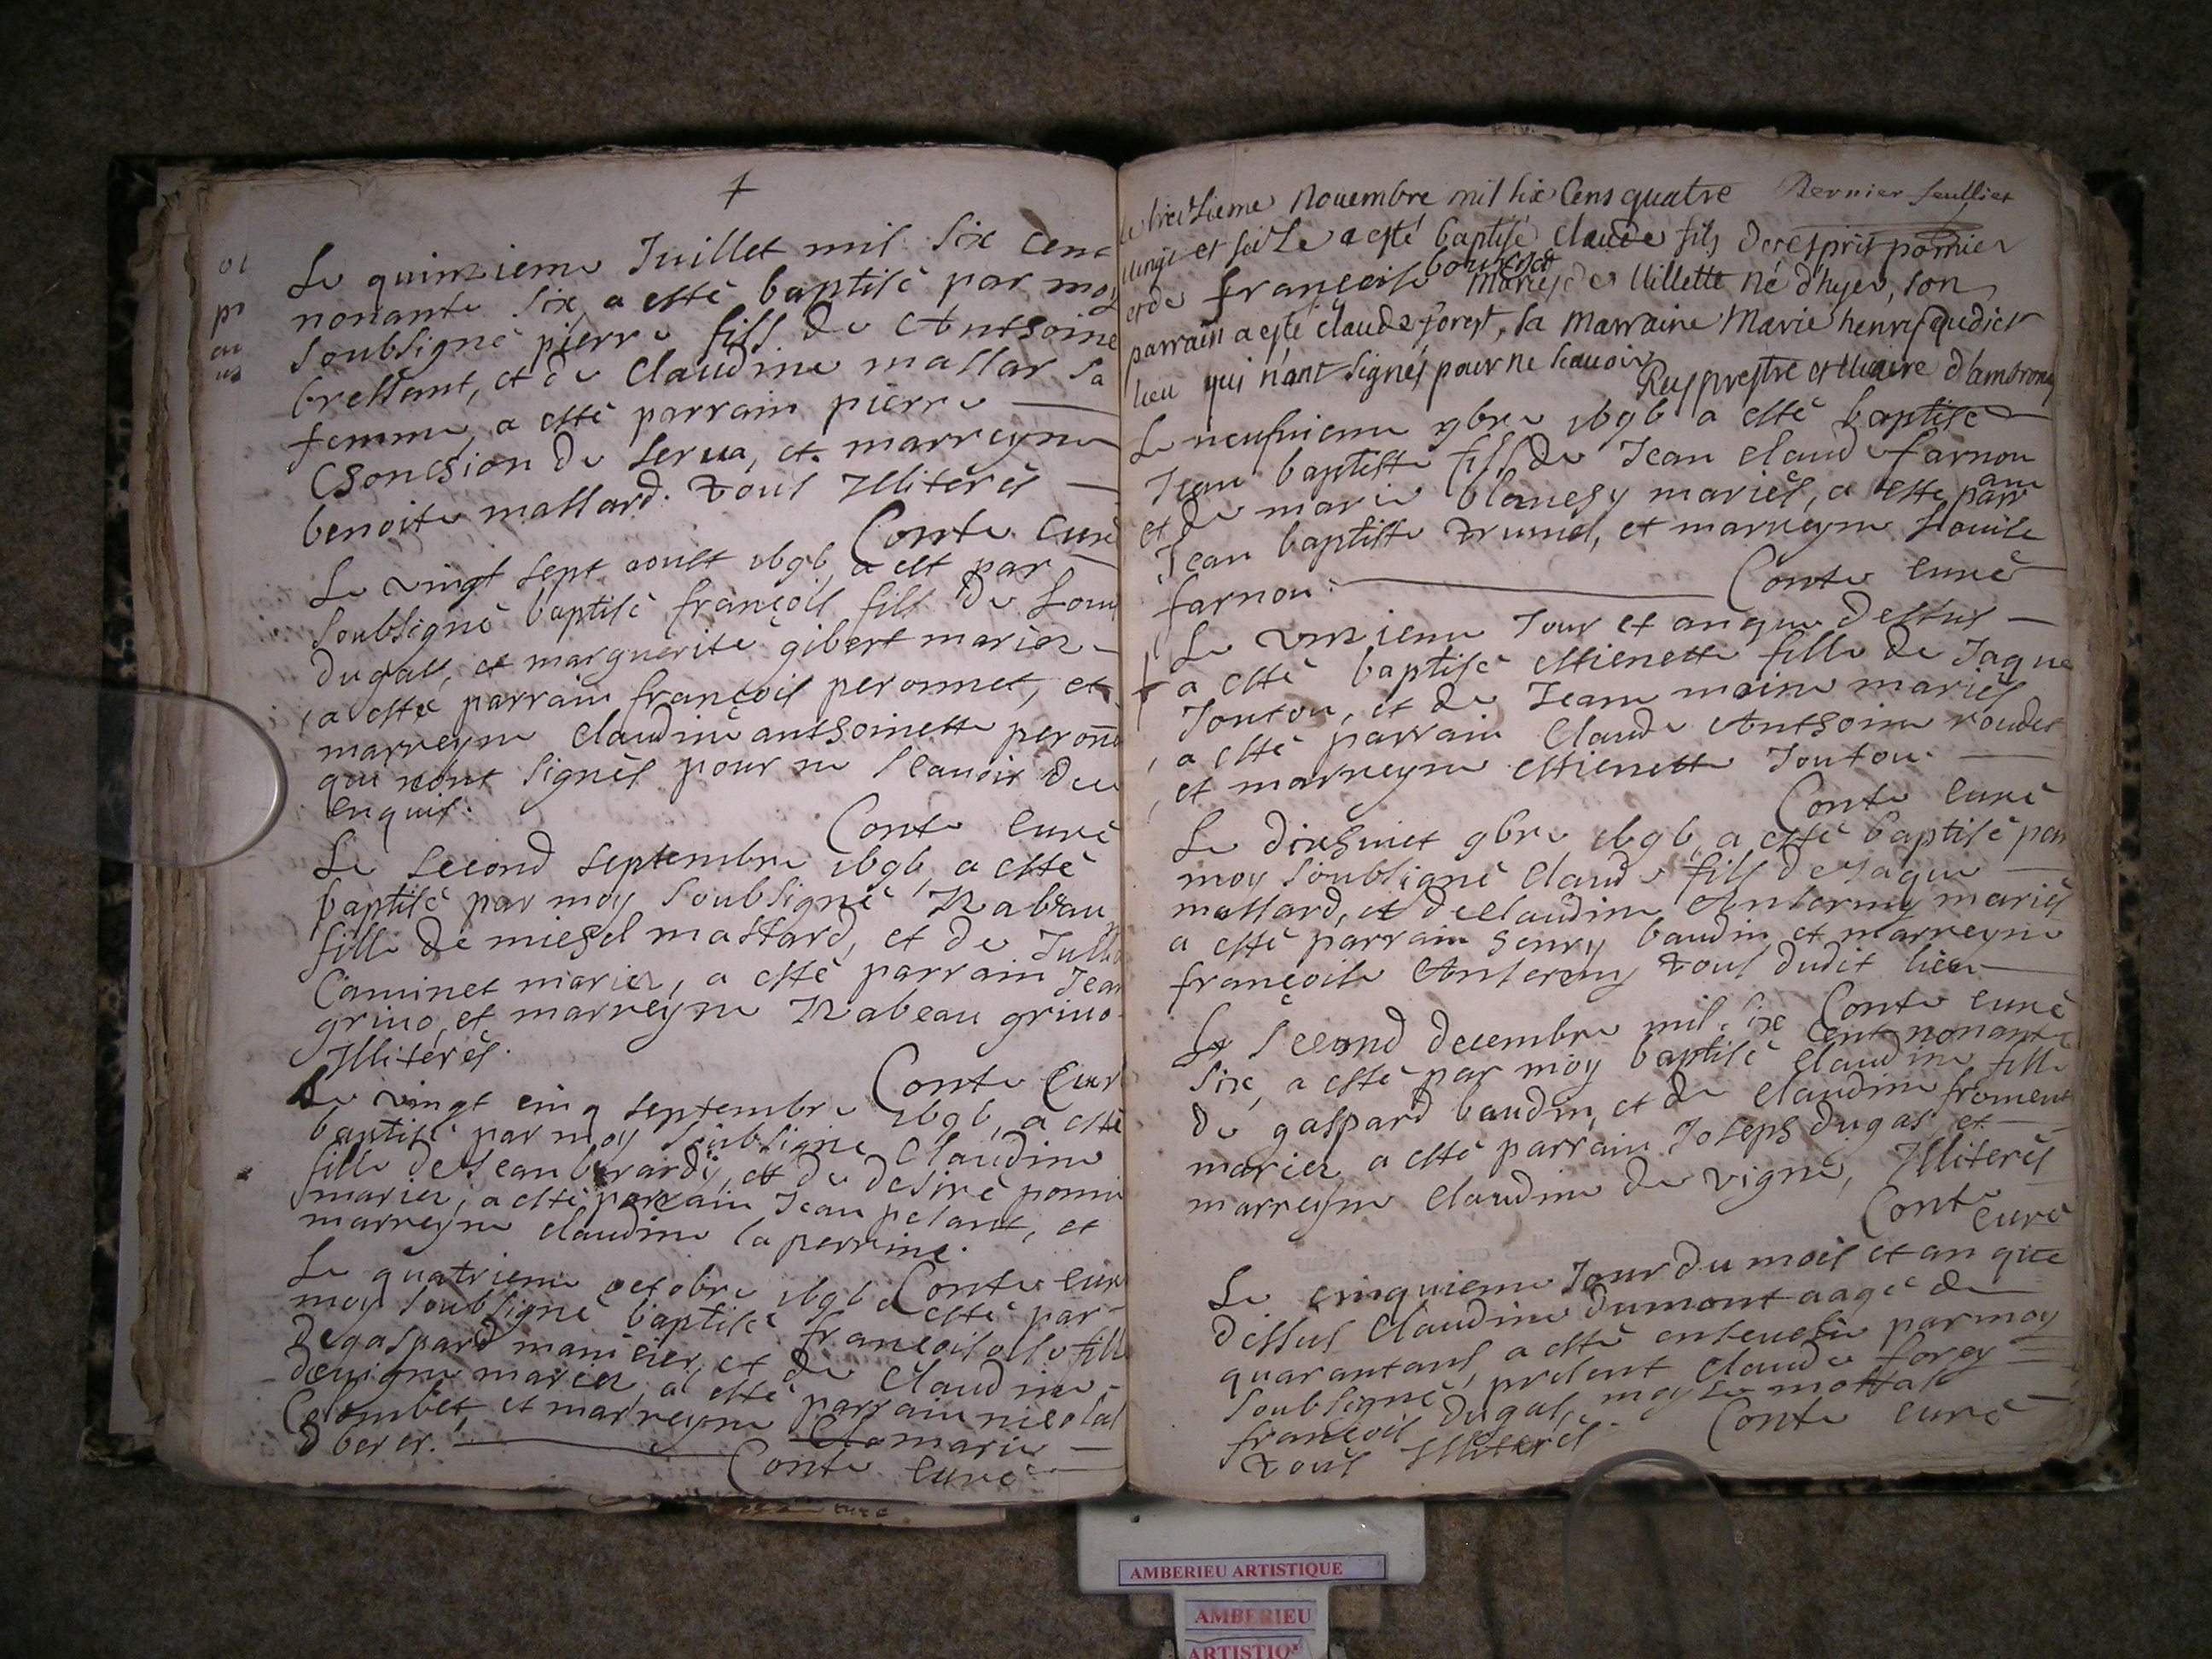 Le quinzieme Juillet mil six cent
nonante six, a esté baptisé par moy
soubsigné pierre fils de Anthoine
bressant, et de Claudine massar sa
femme, a esté parrain pierre
de Serua, et marreyne
benoite massard. tous Illiterés
Conte Curé
Le vingt sept aoust 1696 a est par
soubsigné baptisé françois fils de Louy
dugas, et marguerite gibert mariez
a esté parrain françois peronnet, et
marreyne Claudine anthoinette peronne
qui nont signés pour ne scauoir de ce
enquis.
Conte curé
Le second septembre 1696, a esté
baptisé par moy soubsigné Izabeau
fille de michel massard, et de Jullie
Caminet mariez, a esté parrain Jean
grino, et marreyne Izabeau grino
Illiterés.
Conte Curé
Le vingt cinq septembre 1696, a esté
baptisé par moy soubsigné Claudine
fille de Jean berardy, et de desiré pomie
mariez, a esté parrain Jean pelant, et
marreyne claudine la perrine.
Conte cure
Le quatrieme octobre 1696 a esté par
moy soubsigné baptisé françoise fille
de gaspard mainier, et de Claudine
deuigne mariez, a esté parrain nicolas
Colombet, et marreyne marie
dberer.
Conte curé
Dernier feulliet
le treizieme Nouembre mil six Cens quatre
uingt et seize a esté baptisé claude fils de espris pomier
et de françoise mariés de Uillette né d'hyer, son
parrain a esté claude forest, sa marraine Marie henry dudict
lieu qui n'ant signés pour ne scauoir
Ruy prestre et Uicaire d'ambronay
Le neufuieme 9bre 1696 a esté baptisé
Jean baptiste fils de Jean claude farnou
et de marie blanchy mariés, a esté parrain
Jean baptiste trumel, et marreyne Louise
farnou.
Conte curé
Le unzieme Jour et an que dessus
a esté baptisé estienette fille de Jaque
Joutou, et de Jeane moine mariés
a esté parrain Claude Anthoine roudet
et marreyne estienette Joutou.
Conte curé
Le dixhuict 9bre 1696, a esté baptisé par
moy soubsigné Claude fils de Jaque
massard, et de Claudine Anterny mariés
a esté parrain henry baudin et marreyne
françoise Anterny tous dudit lieu
Conte curé
Le second decembre mil six cent nonante
six, a esté par moy baptisé Claudine fille
de gaspard baudin, et de Claudine froment
mariez a esté parrain Joseph dugas et
marreyne Claudine de vigne, Illiterés
Conte curé
Le cinquieme Jour du mois et an que
dessus Claudine dumont aagé de
quarant ans, a esté enseuelie par moy
soubsigné, present Claude forey
françois dugas, moyse mottas
tous Illiterés.
Conte curé
AMBERIEU ARTISTIQUE
AMBERIEU
ARTISTIQ